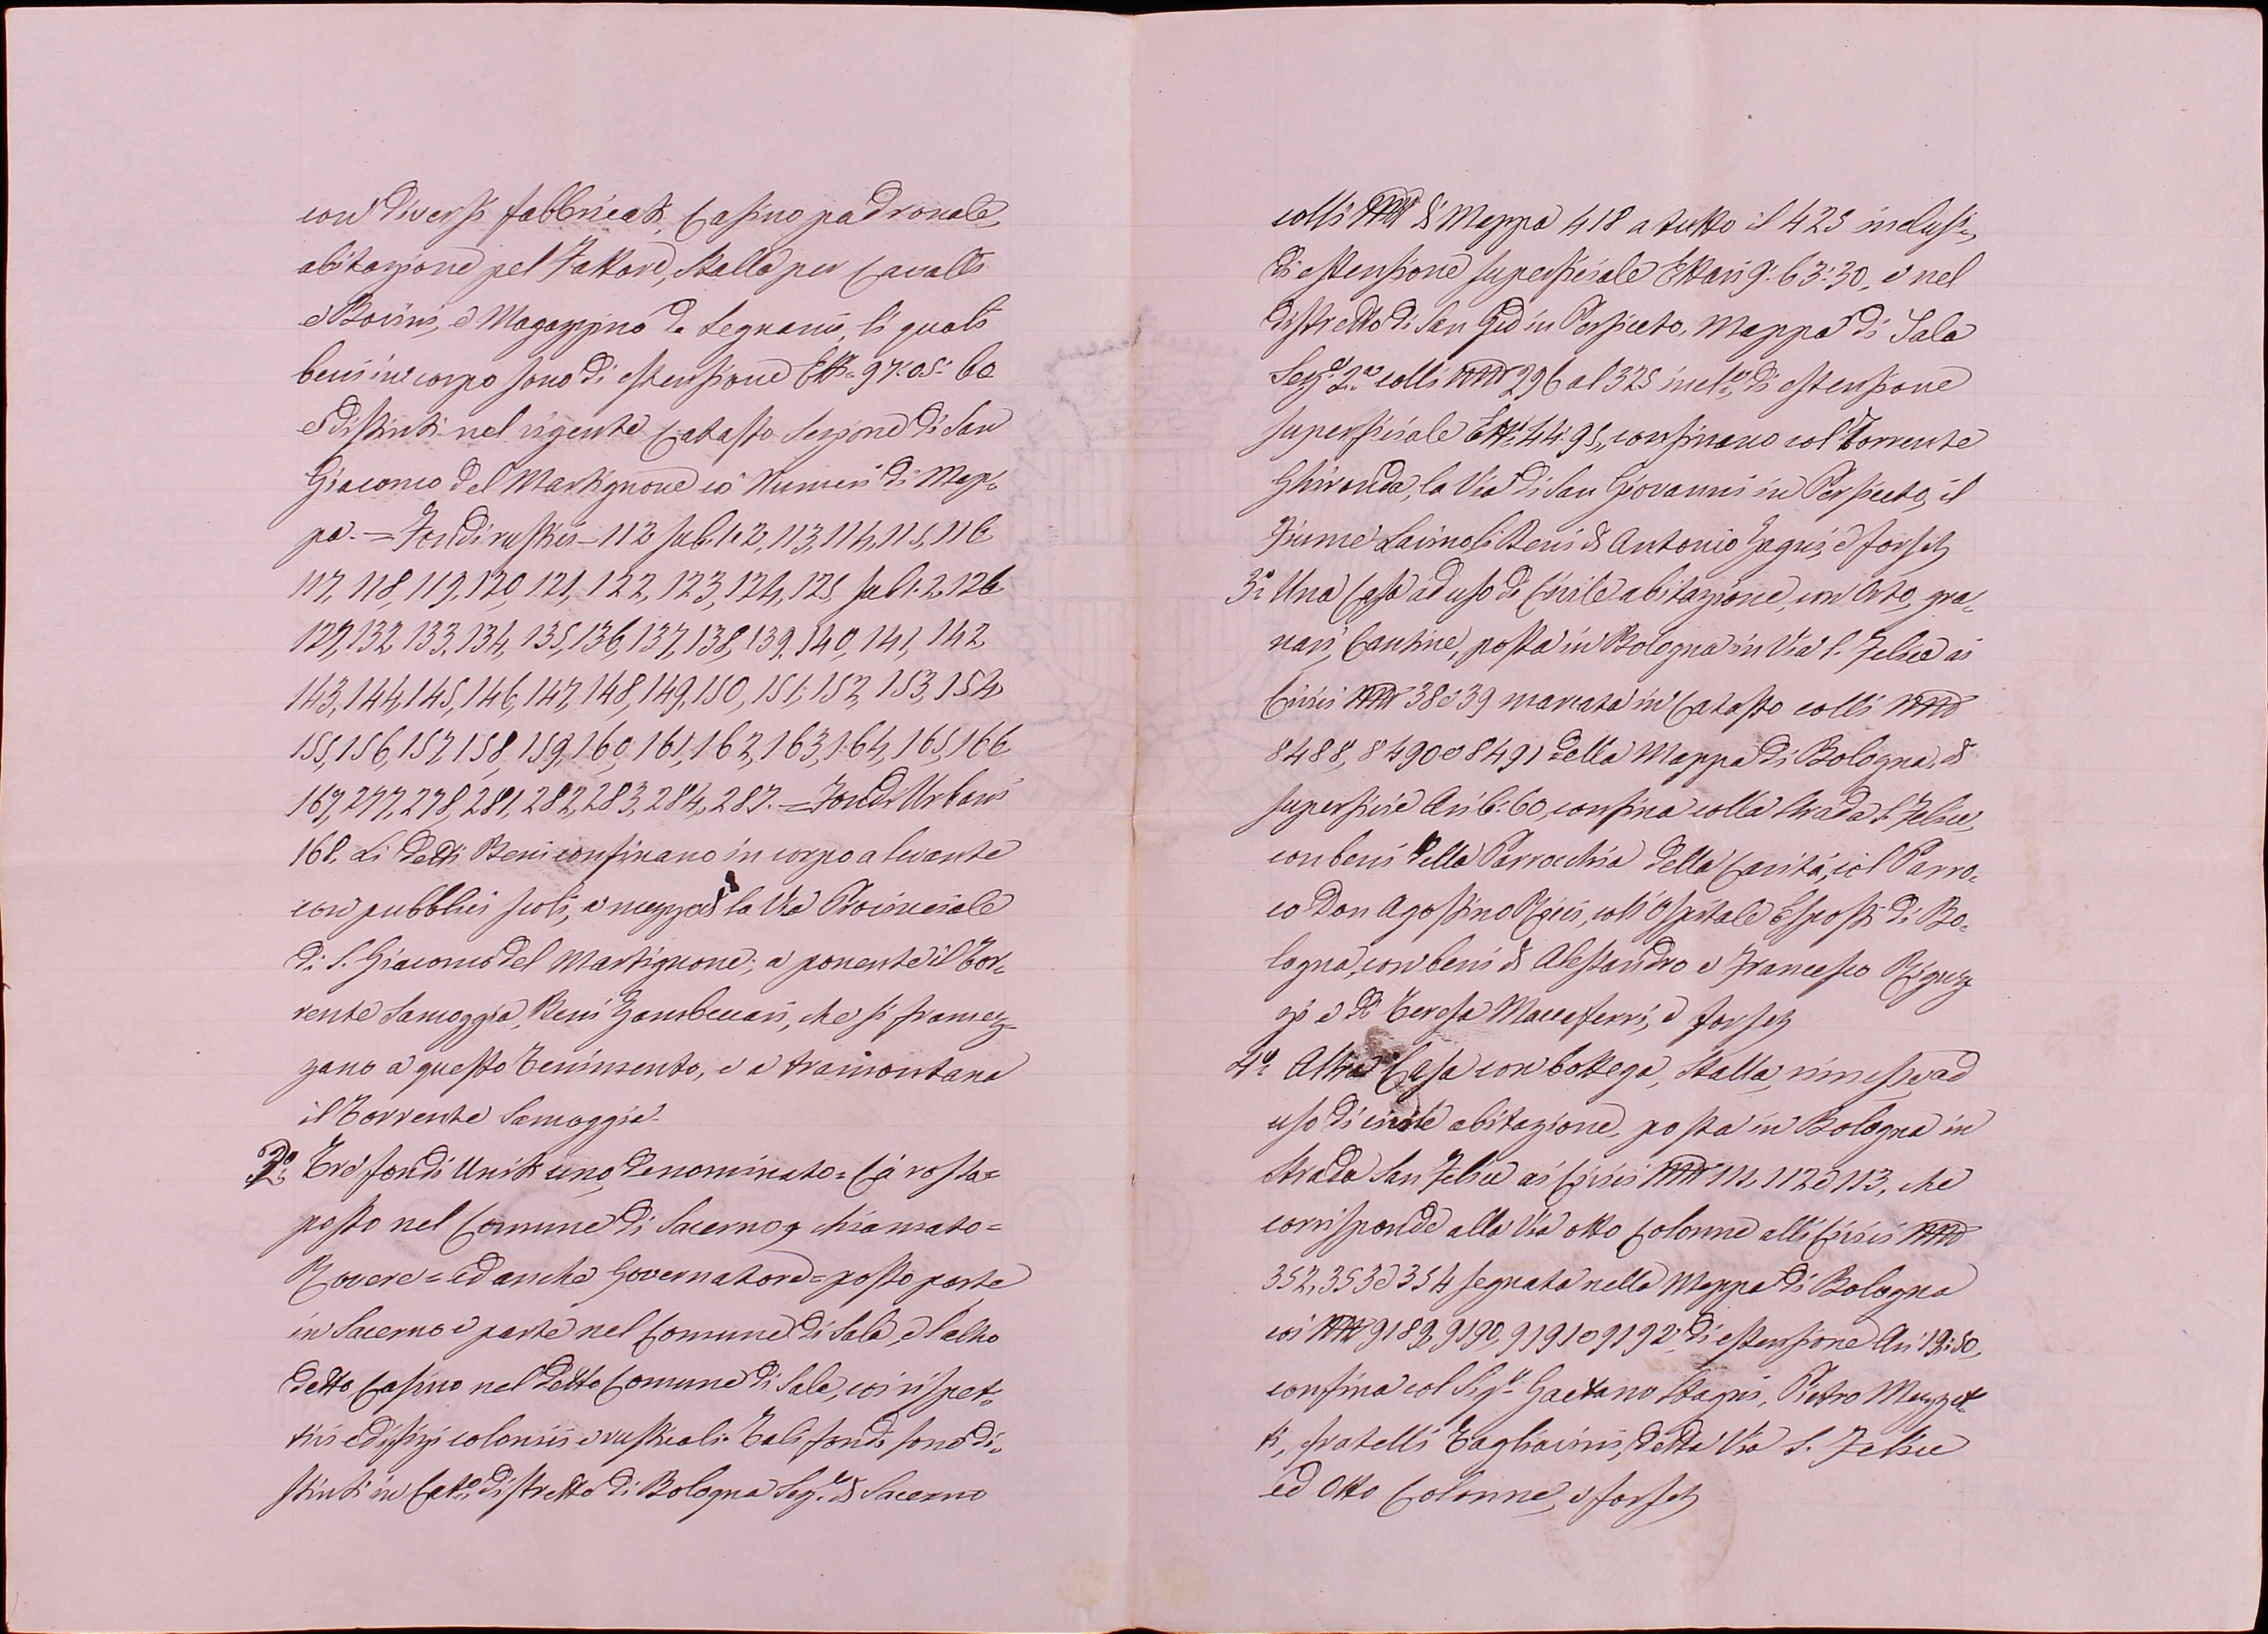 con diversi fabbricati, Casino padronale,
abitazione pel Fattore, Stalla per Cavalli
e Bovini, e Magazzino da Legnami, li quali
beni in corpo sono di estensione Ett. 97:05:60
e distinti nel vigente Catasto Sezione di San
Giacomo del Martignone coi Numeri di Map=
pa. = Fondi rustici = 112 sub. 1. 2, 113, 114, 115, 116
117, 118, 119, 120, 121, 122, 123, 124, 125 sub 1. 2, 126
127, 132, 133, 134, 135, 136, 137, 138, 139, 140, 141, 142
143, 144, 145, 146, 147, 148, 149, 150, 151, 152, 153, 154
155, 156, 157, 158, 159, 160, 161, 162, 163, 164, 165, 166
167, 277, 278, 281, 282, 283, 284, 287. = Fondi Urbani
168. Li detti Beni confinano in corpo a levante
con pubblici scoli, a mezzodì la Via Provinciale
di S. Giacomo del Martignone; a ponente il Tor=
rente Samoggia, Beni Zambeccari, che si framez=
zano a questo Tenimento, e a tramontana
il Torrente Samoggia.
2.º Tre fondi Uniti uno denominato = Cà rossa =
posto nel Comune di Sacerno, chiamato =
Rovere = ed anche Governatore = posto parte
in Sacerno e parte nel Comune di Sala, e l'altro
detto Casino nel detto Comune di Sala, coi rispet=
tivi edifizi colonici e rusticali. Tali fondi sono di=
stinti in Cat.º distretto di Bologna Sez.e di Sacerno
colli NNri di Mappa 418 a tutto il 425 inclusi=,
di estensione superficiale Ettari 9:63:30, e nel
distretto di San Gio in Persiceto, Mappa di Sala
Sez.e 2.a colli NNri 296 al 325 incl.o, di estensione
superficiale Etti 44:95, confinano col Torrente
Ghironda, la Via di San Giovanni in Persiceto, il
Fiume Lavinoli Beni di Antonio Zagni, e forse
3.º Una Casa ad uso di Civile abitazione, con Orto, gra=
nari, Cantine, posta in Bologna in Via S. Felice ai
Civici NNri 38 e 39 marcata in Catasto colli NNri
8488, 8490 e 8491 della Mappa di Bologna, di
superficie Ari 6:60, confina colla Strada S. Felice,
con beni della Parrocchia della Carità, col Parro=
co Don Agostino Ricci, coll'Ospitale Esposti di Bo=
logna, con beni di Alessandro e Francesco Riguz=
zi e di Teresa Maccaferri, e forse
4.º Altra Casa con bottega, Stalla, rimessa ad
uso di civile abitazione, posta in Bologna in
Strada San Felice ai Civici NNri 111, 112 e 113, che
corrisponde alla Via otto Colonne alli Civici NNri
352, 353 e 354 segnata nella Mappa di Bologna
coi NNri 9189, 9190, 9191 e 9192, di estensione Ari 19:50,
confina col Sig.r Gaetano Stagni, Pietro Mezzet=
ti, fratelli Tagliavini, detta Via S. Felice
ed Otto Colonne, e forse